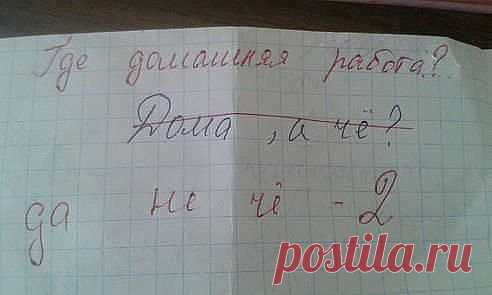 Где домашняя работа?
Дома, и чё?
да не чё - 2
postila.ru